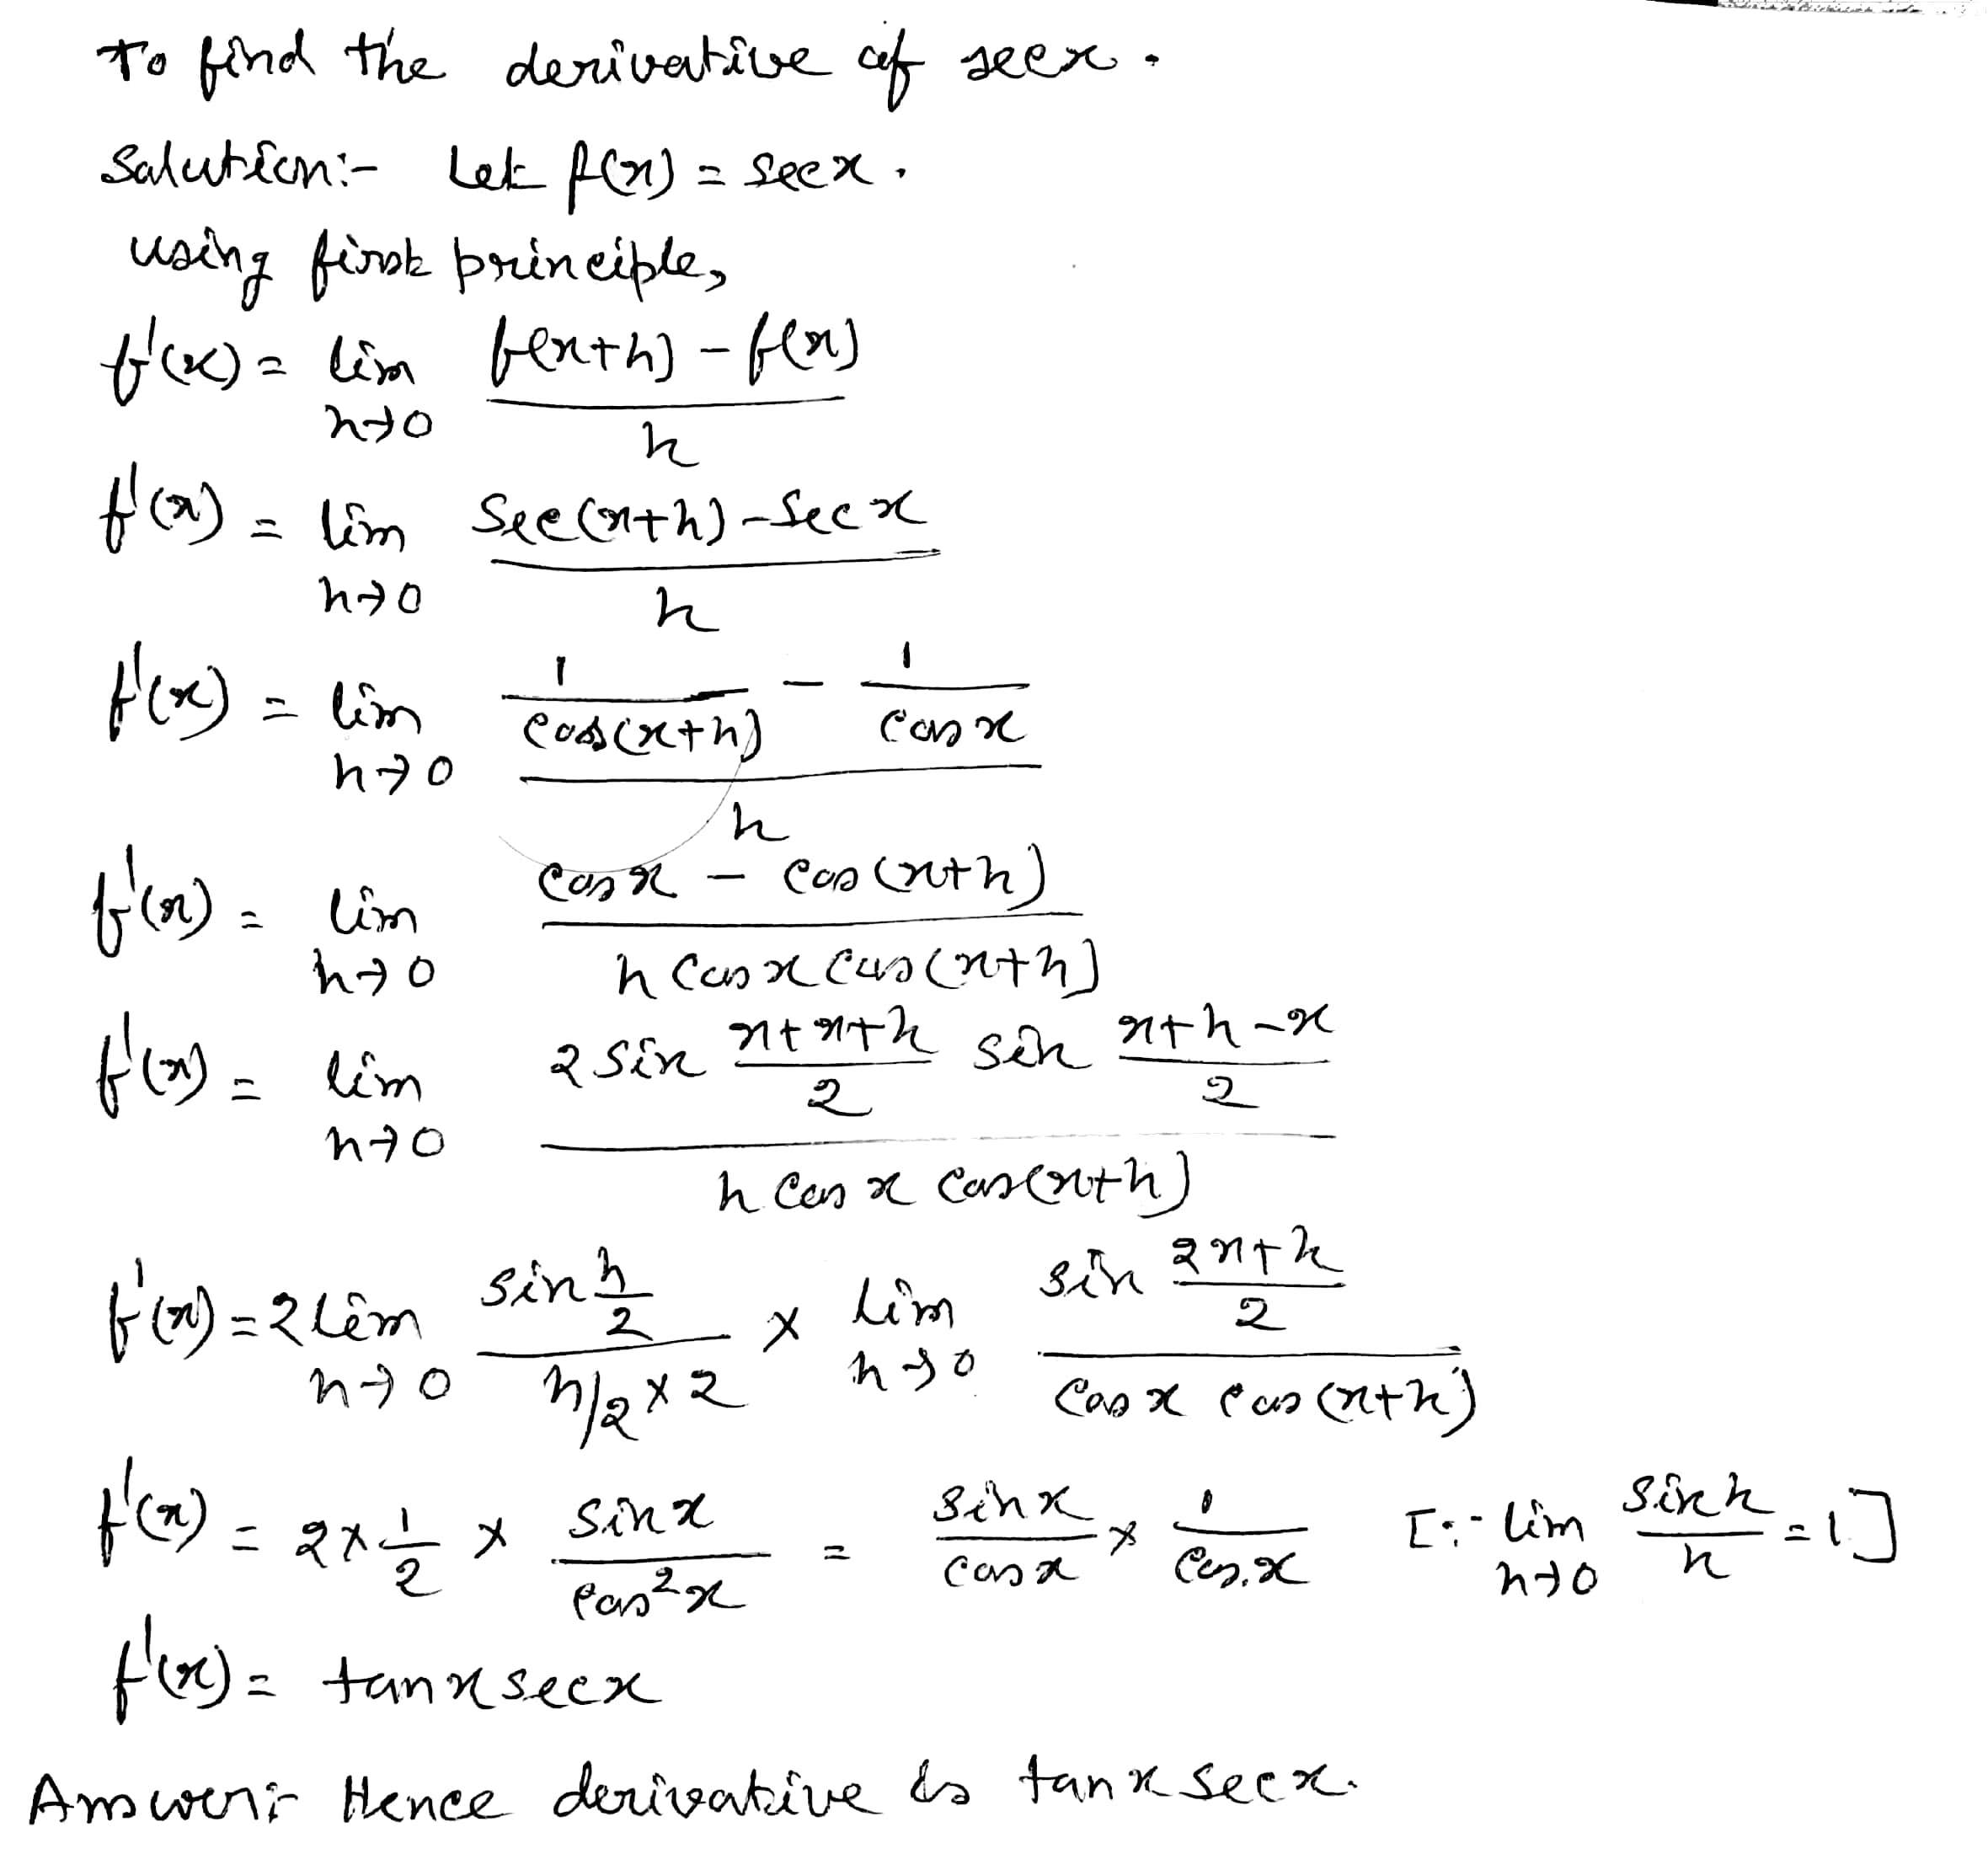 To find the derivative of secx.
Solution:- Let f(x) = secx.
using first principle,
f'(x) = lim h→0 (f(x+h) - f(x)) / h
f'(x) = lim h→0 (sec(x+h) - sec x) / h
f'(x) = lim h→0 (1/cos(x+h) - 1/cos x) / h
f'(x) = lim h→0 (cos x - cos(x+h)) / (h cos x cos(x+h))
f'(x) = lim h→0 (2 sin (x+x+h)/2 sin (x+h-x)/2) / (h cos x cos(x+h))
f'(x) = 2 lim h→0 (sin h/2) / (h/2 × 2) × lim h→0 (sin (2x+h)/2) / (cos x cos(x+h))
f'(x) = 2 × 1/2 × sin x / cos²x = sin x / cos x × 1 / cos x [∵ lim h→0 sin h / h = 1]
f'(x) = tan x sec x
Answer:- Hence derivative is tan x sec x.